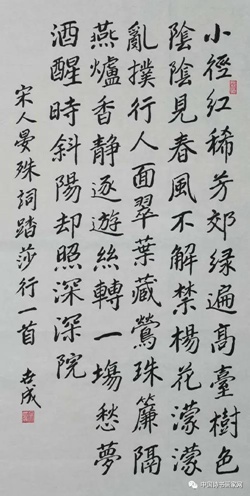 小徑紅稀芳郊緑遍高臺樹色
陰陰見春風不解禁楊花濛濛
亂撲行人面翠葉藏鶯珠簾隔
燕爐香静逐遊絲轉一塲愁夢
酒醒時斜陽却照深深院
宋人晏殊詞踏莎行一首 成
中国诗书画家网